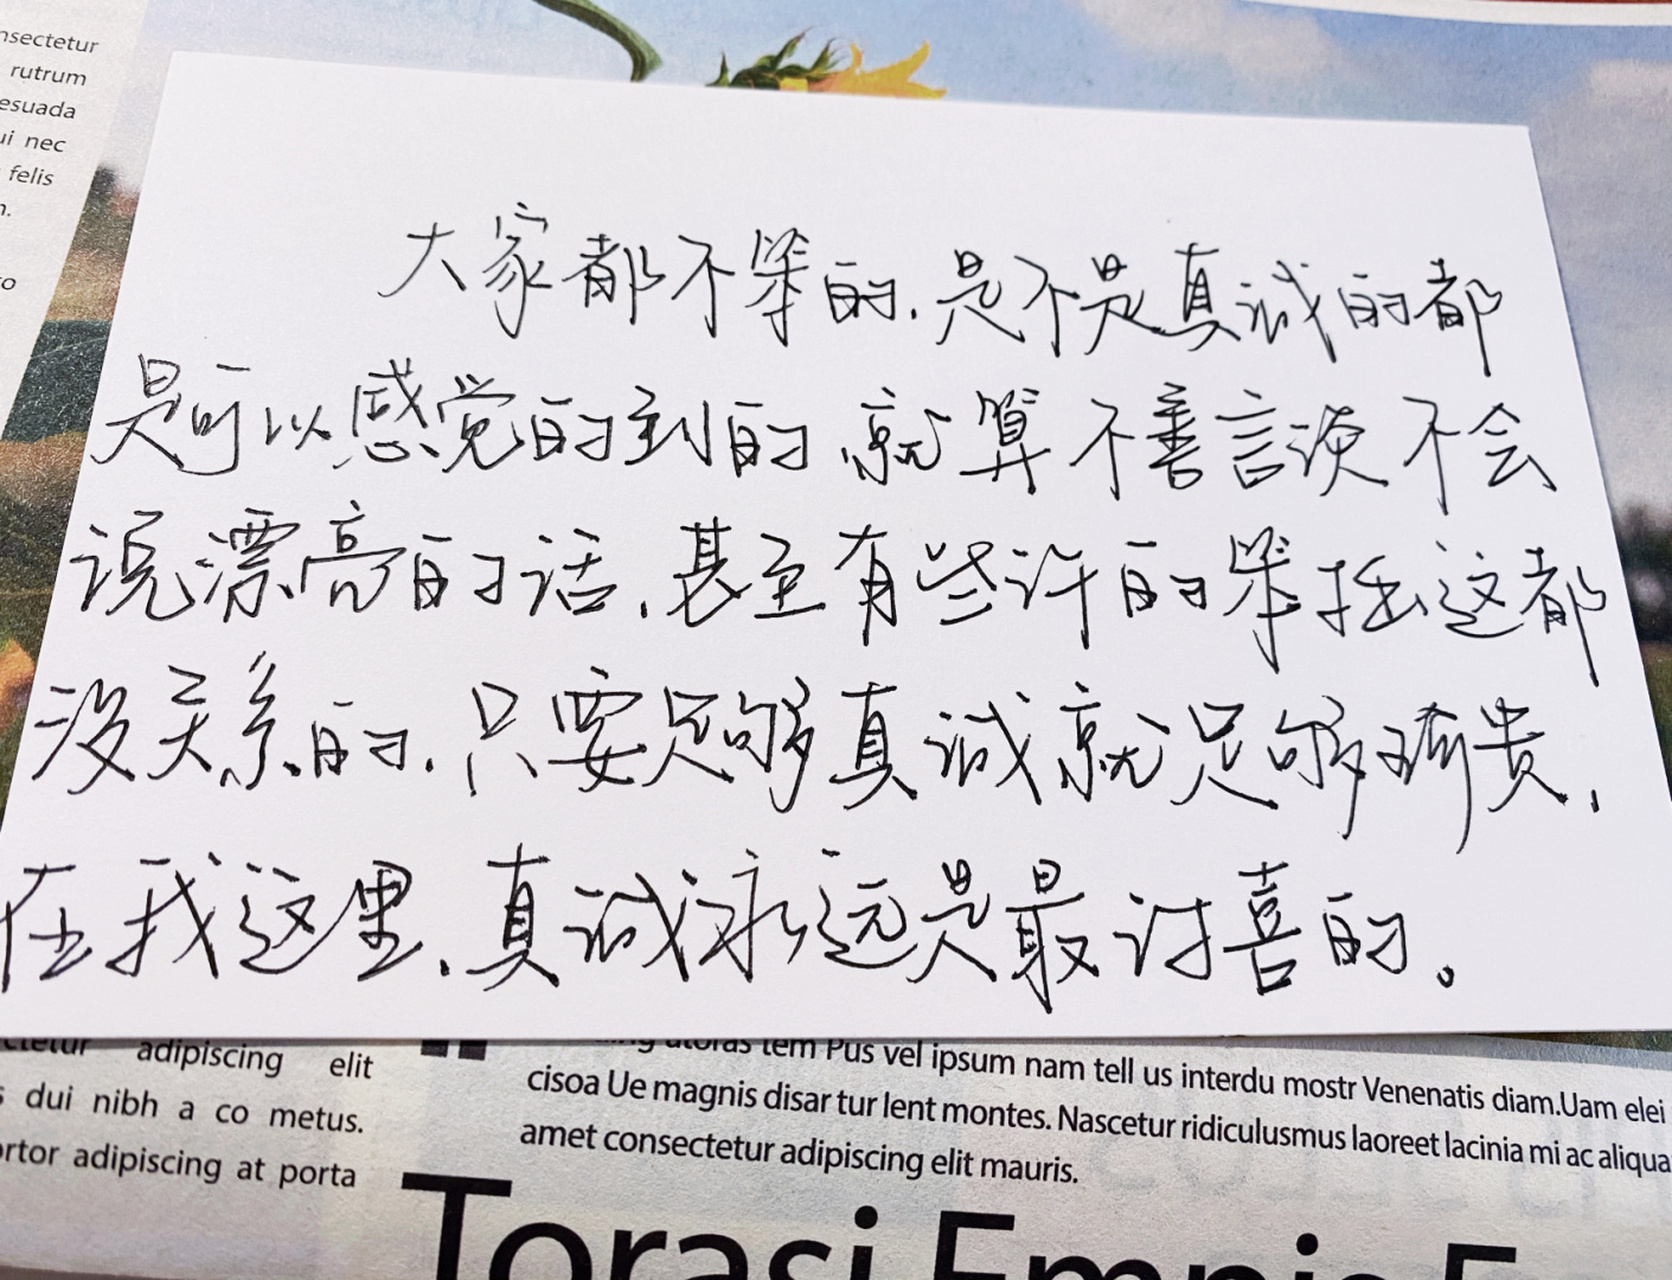 nsectetur
rutrum
esuada
ui nec
felis
大家都不笨的,是不是真诚的都
是可以感觉的到的,就算不善言谈不会
说漂亮的话,甚至有些许的笨拙这都
没关系的,只要足够真诚就足够珍贵,
在我这里,真诚永远是最讨喜的。
adipiscing elit
dui nibh a co metus.
ortor adipiscing at porta
tem Pus vel ipsum nam tell us interdu mostr Venenatis diam.Uam elei
cisoa Ue magnis disar tur lent montes. Nascetur ridiculusmus laoreet lacinia mi ac aliqua
amet consectetur adipiscing elit mauris.
Torasi